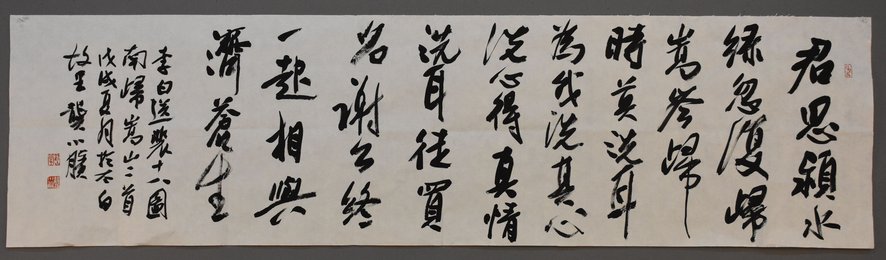 君思潁水
綠忽復歸
嵩岑歸
時莫洗耳
為我洗其心
洗心得真情
洗耳徒買
名謝公終
一起相與
濟蒼生
李白送裴十八圖
南歸嵩山二首
戊戌夏月於石白
故里龔小